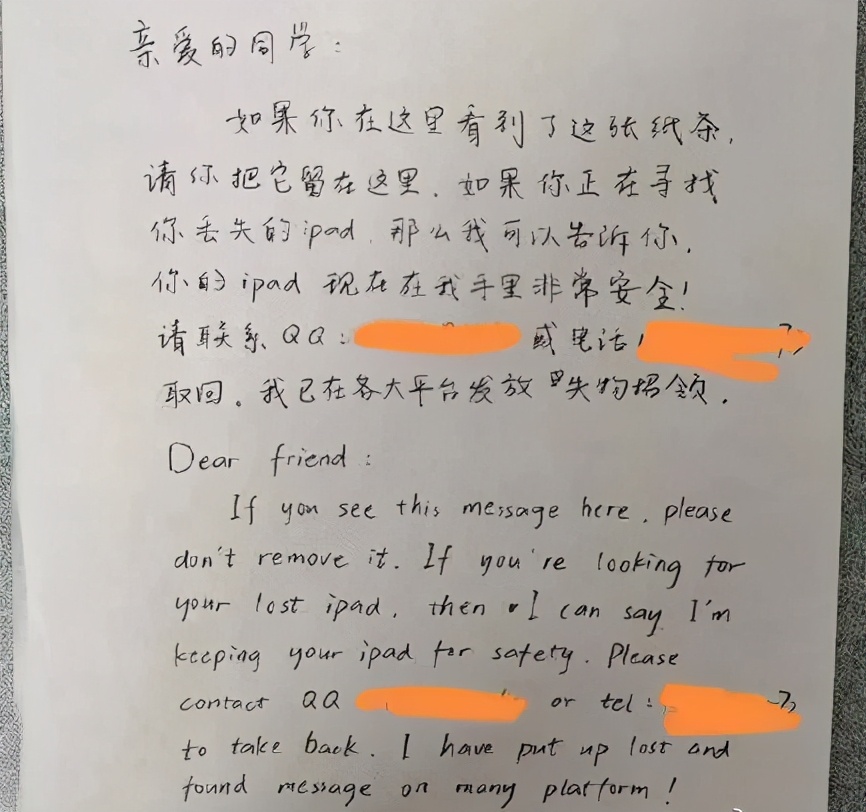 亲爱的同学：
如果你在这里看到了这张纸条，
请你把它留在这里．如果你正在寻找
你丢失的ipad，那么我可以告诉你，
你的ipad现在在我手里非常安全！
请联系QQ： 或电话：
取回。我已在各大平台发放失物招领．
Dear friend :
If you see this message here, please
don't remove it. If you're looking for
your lost ipad, then I can say I'm
keeping your ipad for safety. Please
contact QQ or tel :
to take back. I have put up lost and
found message on many platform !